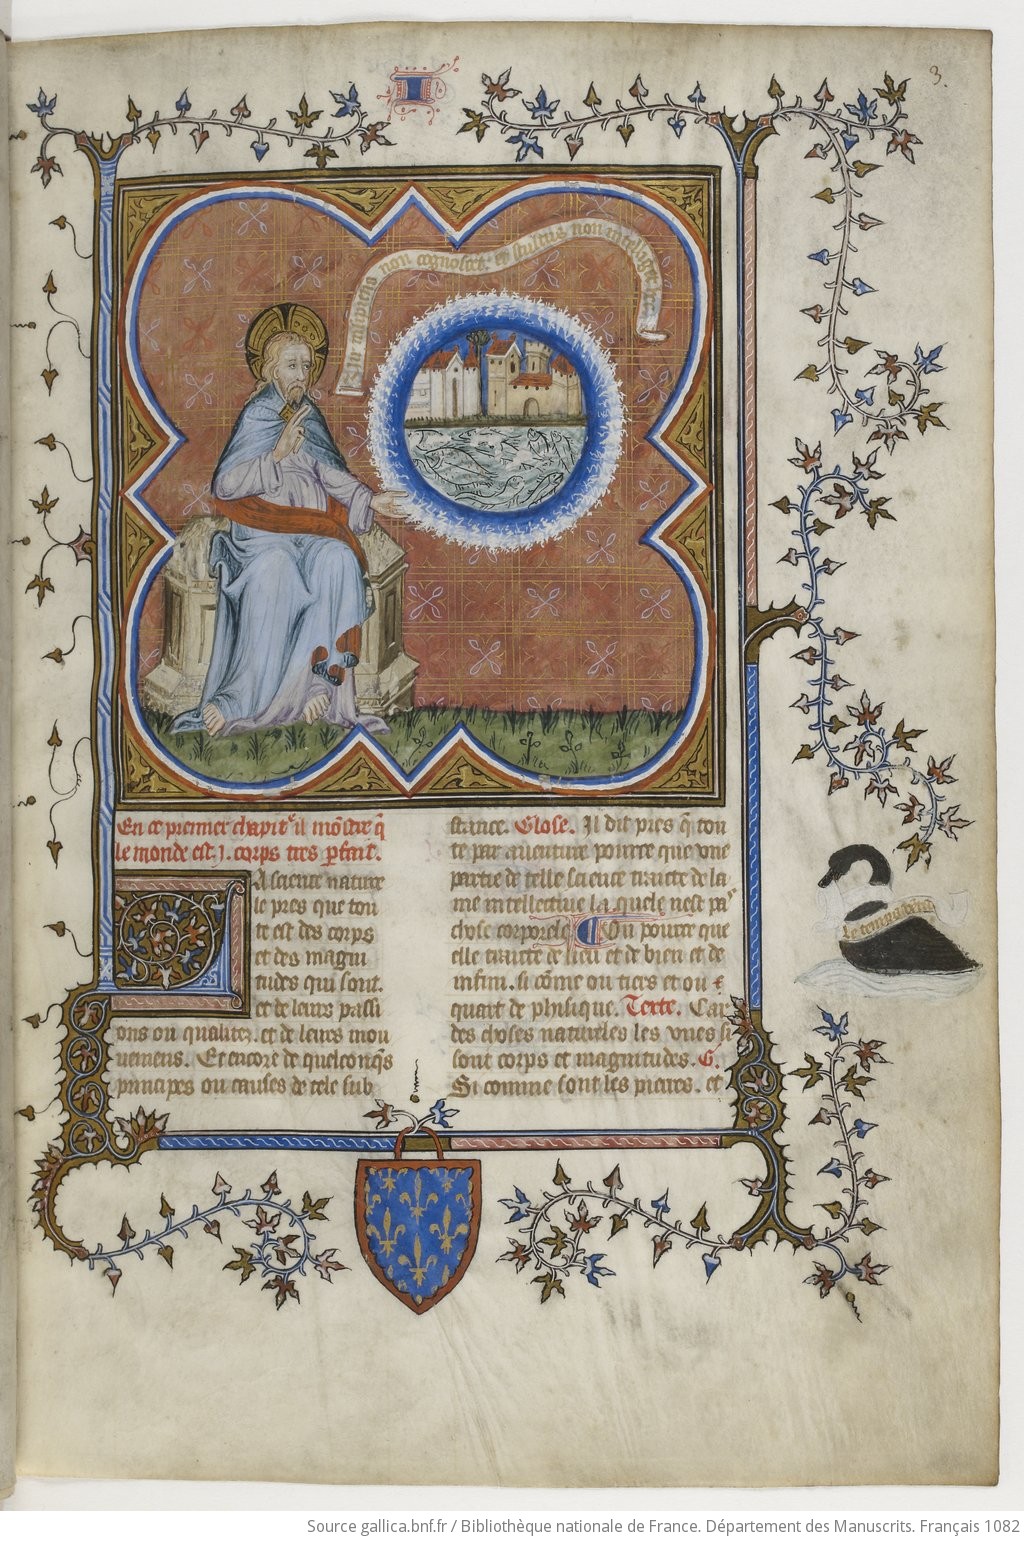 3.
I
Vir insipiens non cognoscet: et stultus non intelliget hec
En ce premier chapitˢ il mōstre q̄
le monde est .j. corps tres p̱fait.
LA science nature
le pres que tou
te est des corps
et des magni
tudes qui sont.
et de leurs passi
ons ou qualitez. et de leurs mou
uemens. Et encore de quelconq̄s
principes ou causes de tele sub
stance. Glose. Il dit pres q̄ tou
te par auenture pource que vne
partie de telle science traicte de la
me intellectiue la quele nest pas
chose corporele ¶ Ou pource que
elle traicte de lieu et de bien et de
infini. si cōme ou tiers et ou
quart de phisique. Texte. Car
des choses natureles les vnes si
sont corps et magnitudes. G.
Si comme sont les pierres. et
Le temps venra
Source gallica.bnf.fr / Bibliothèque nationale de France. Département des Manuscrits. Français 1082